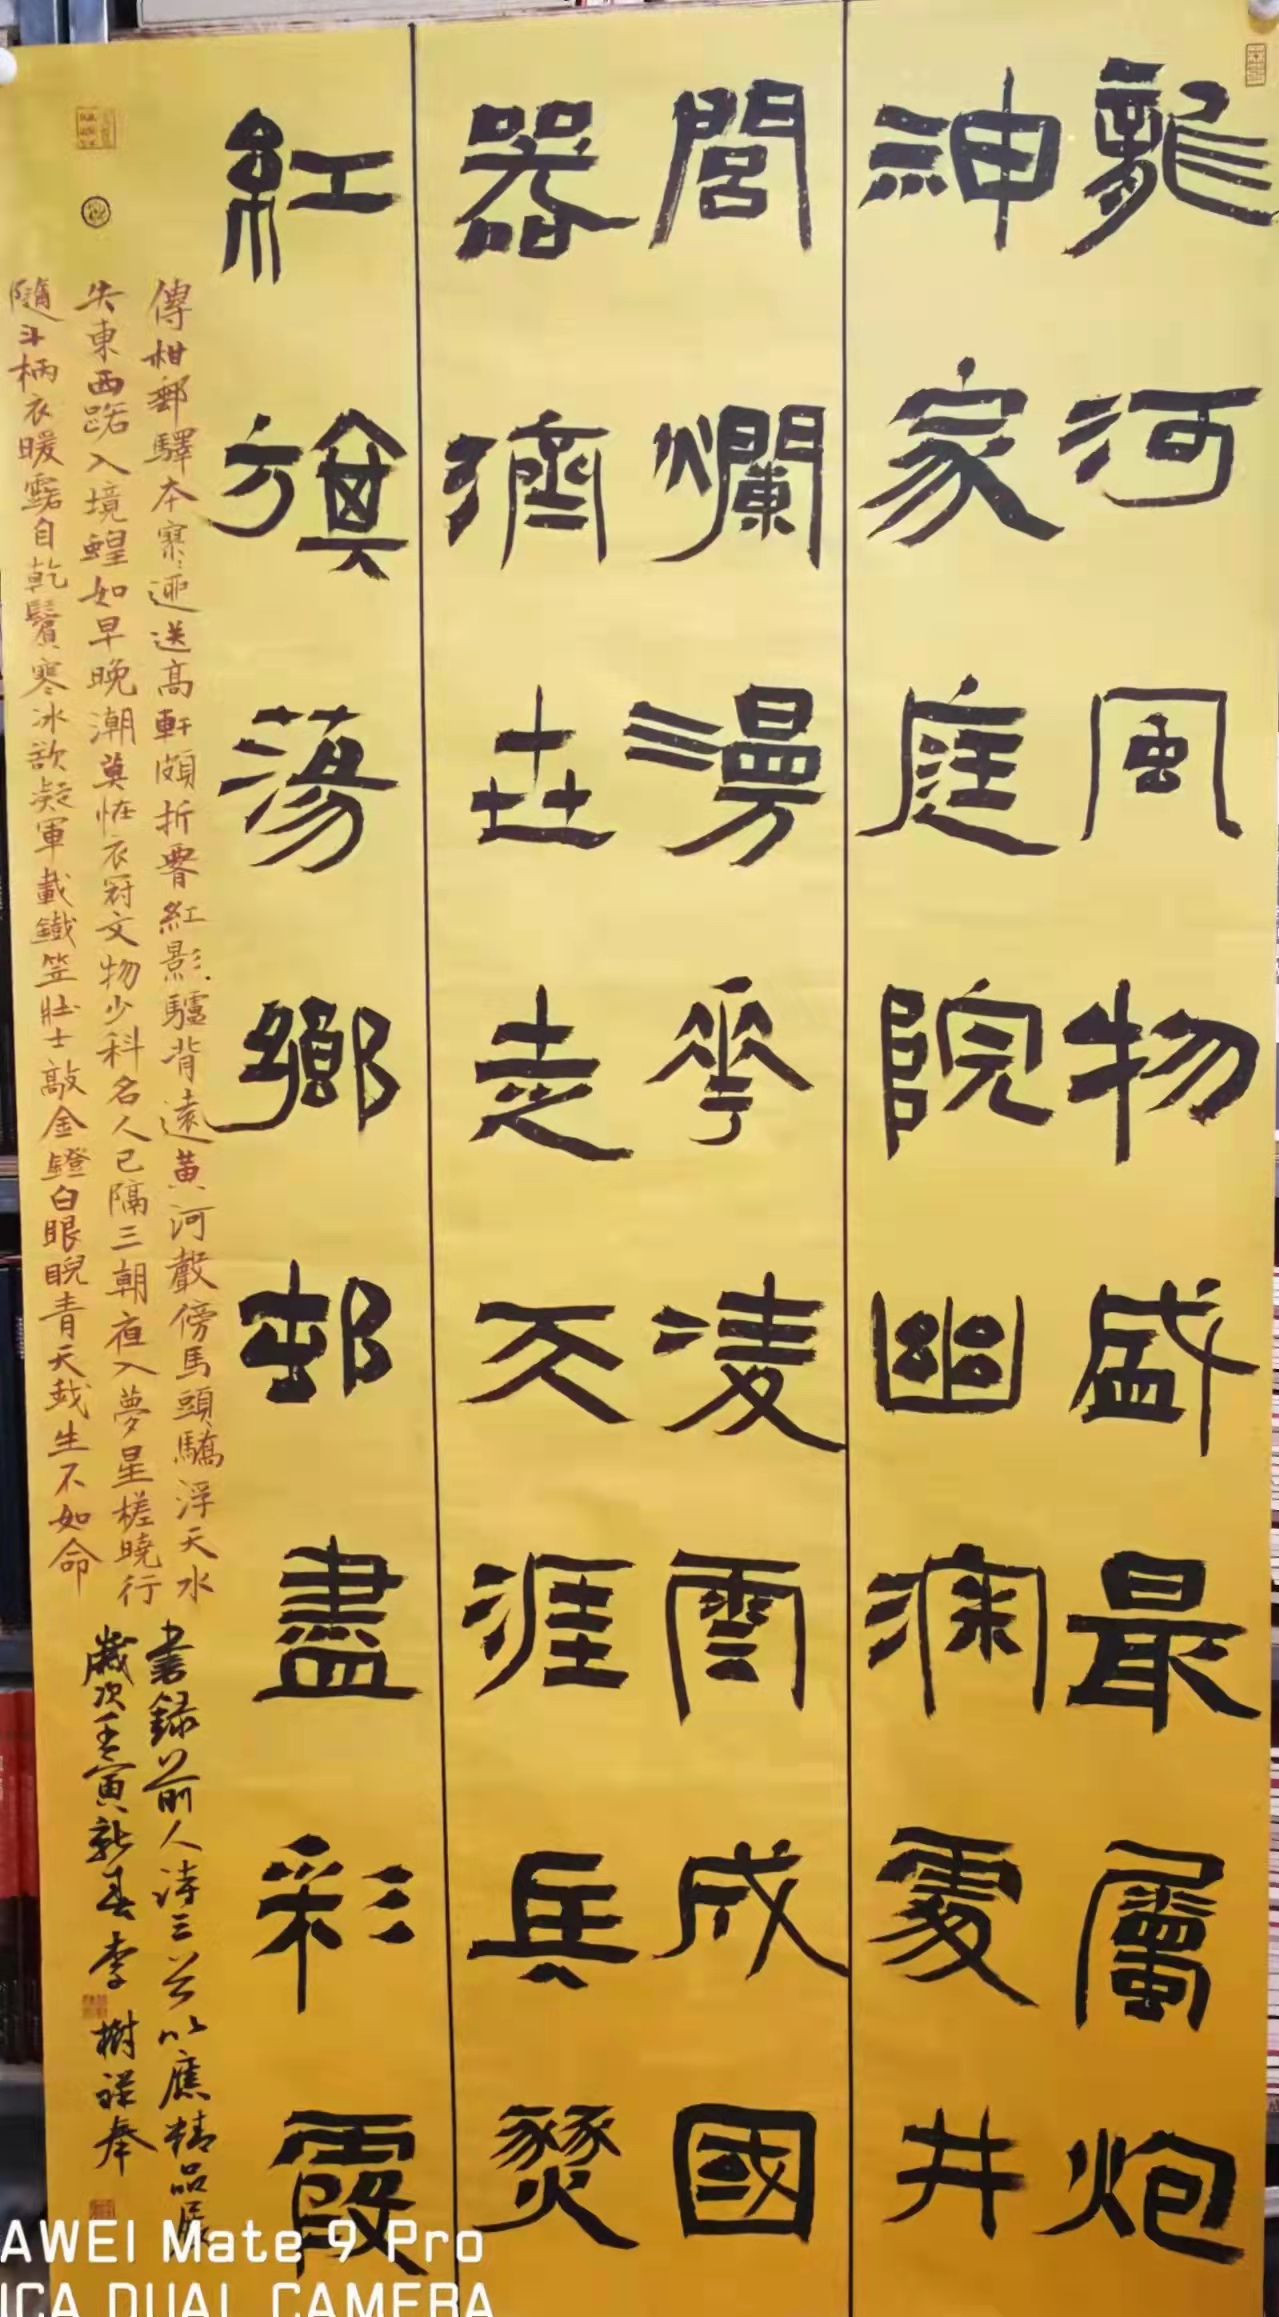 龍河風物盛最屬炮
神家庭院幽深處井
閭爛漫花凌雲成國
器濟世走天涯兵燹
紅旗蕩鄉邨盡彩霞
傳柑郵驛本寥寥迎送高軒頗折腰紅影驢背遠黃河聲傍馬頭驕浮天水
失東西路入境蝗如早晚潮莫怪衣冠文物少科名人已隔三朝夜入夢星槎曉行
隨斗柄衣暖露自乾鬢寒冰欲凝軍載鐵笠壯士敲金鐙白眼睨青天我生不如命
書録前人詩三首以應精品展
歲次壬寅新春李樹祥奉
AWEI Mate 9 Pro
ICA DUAL CAMERA